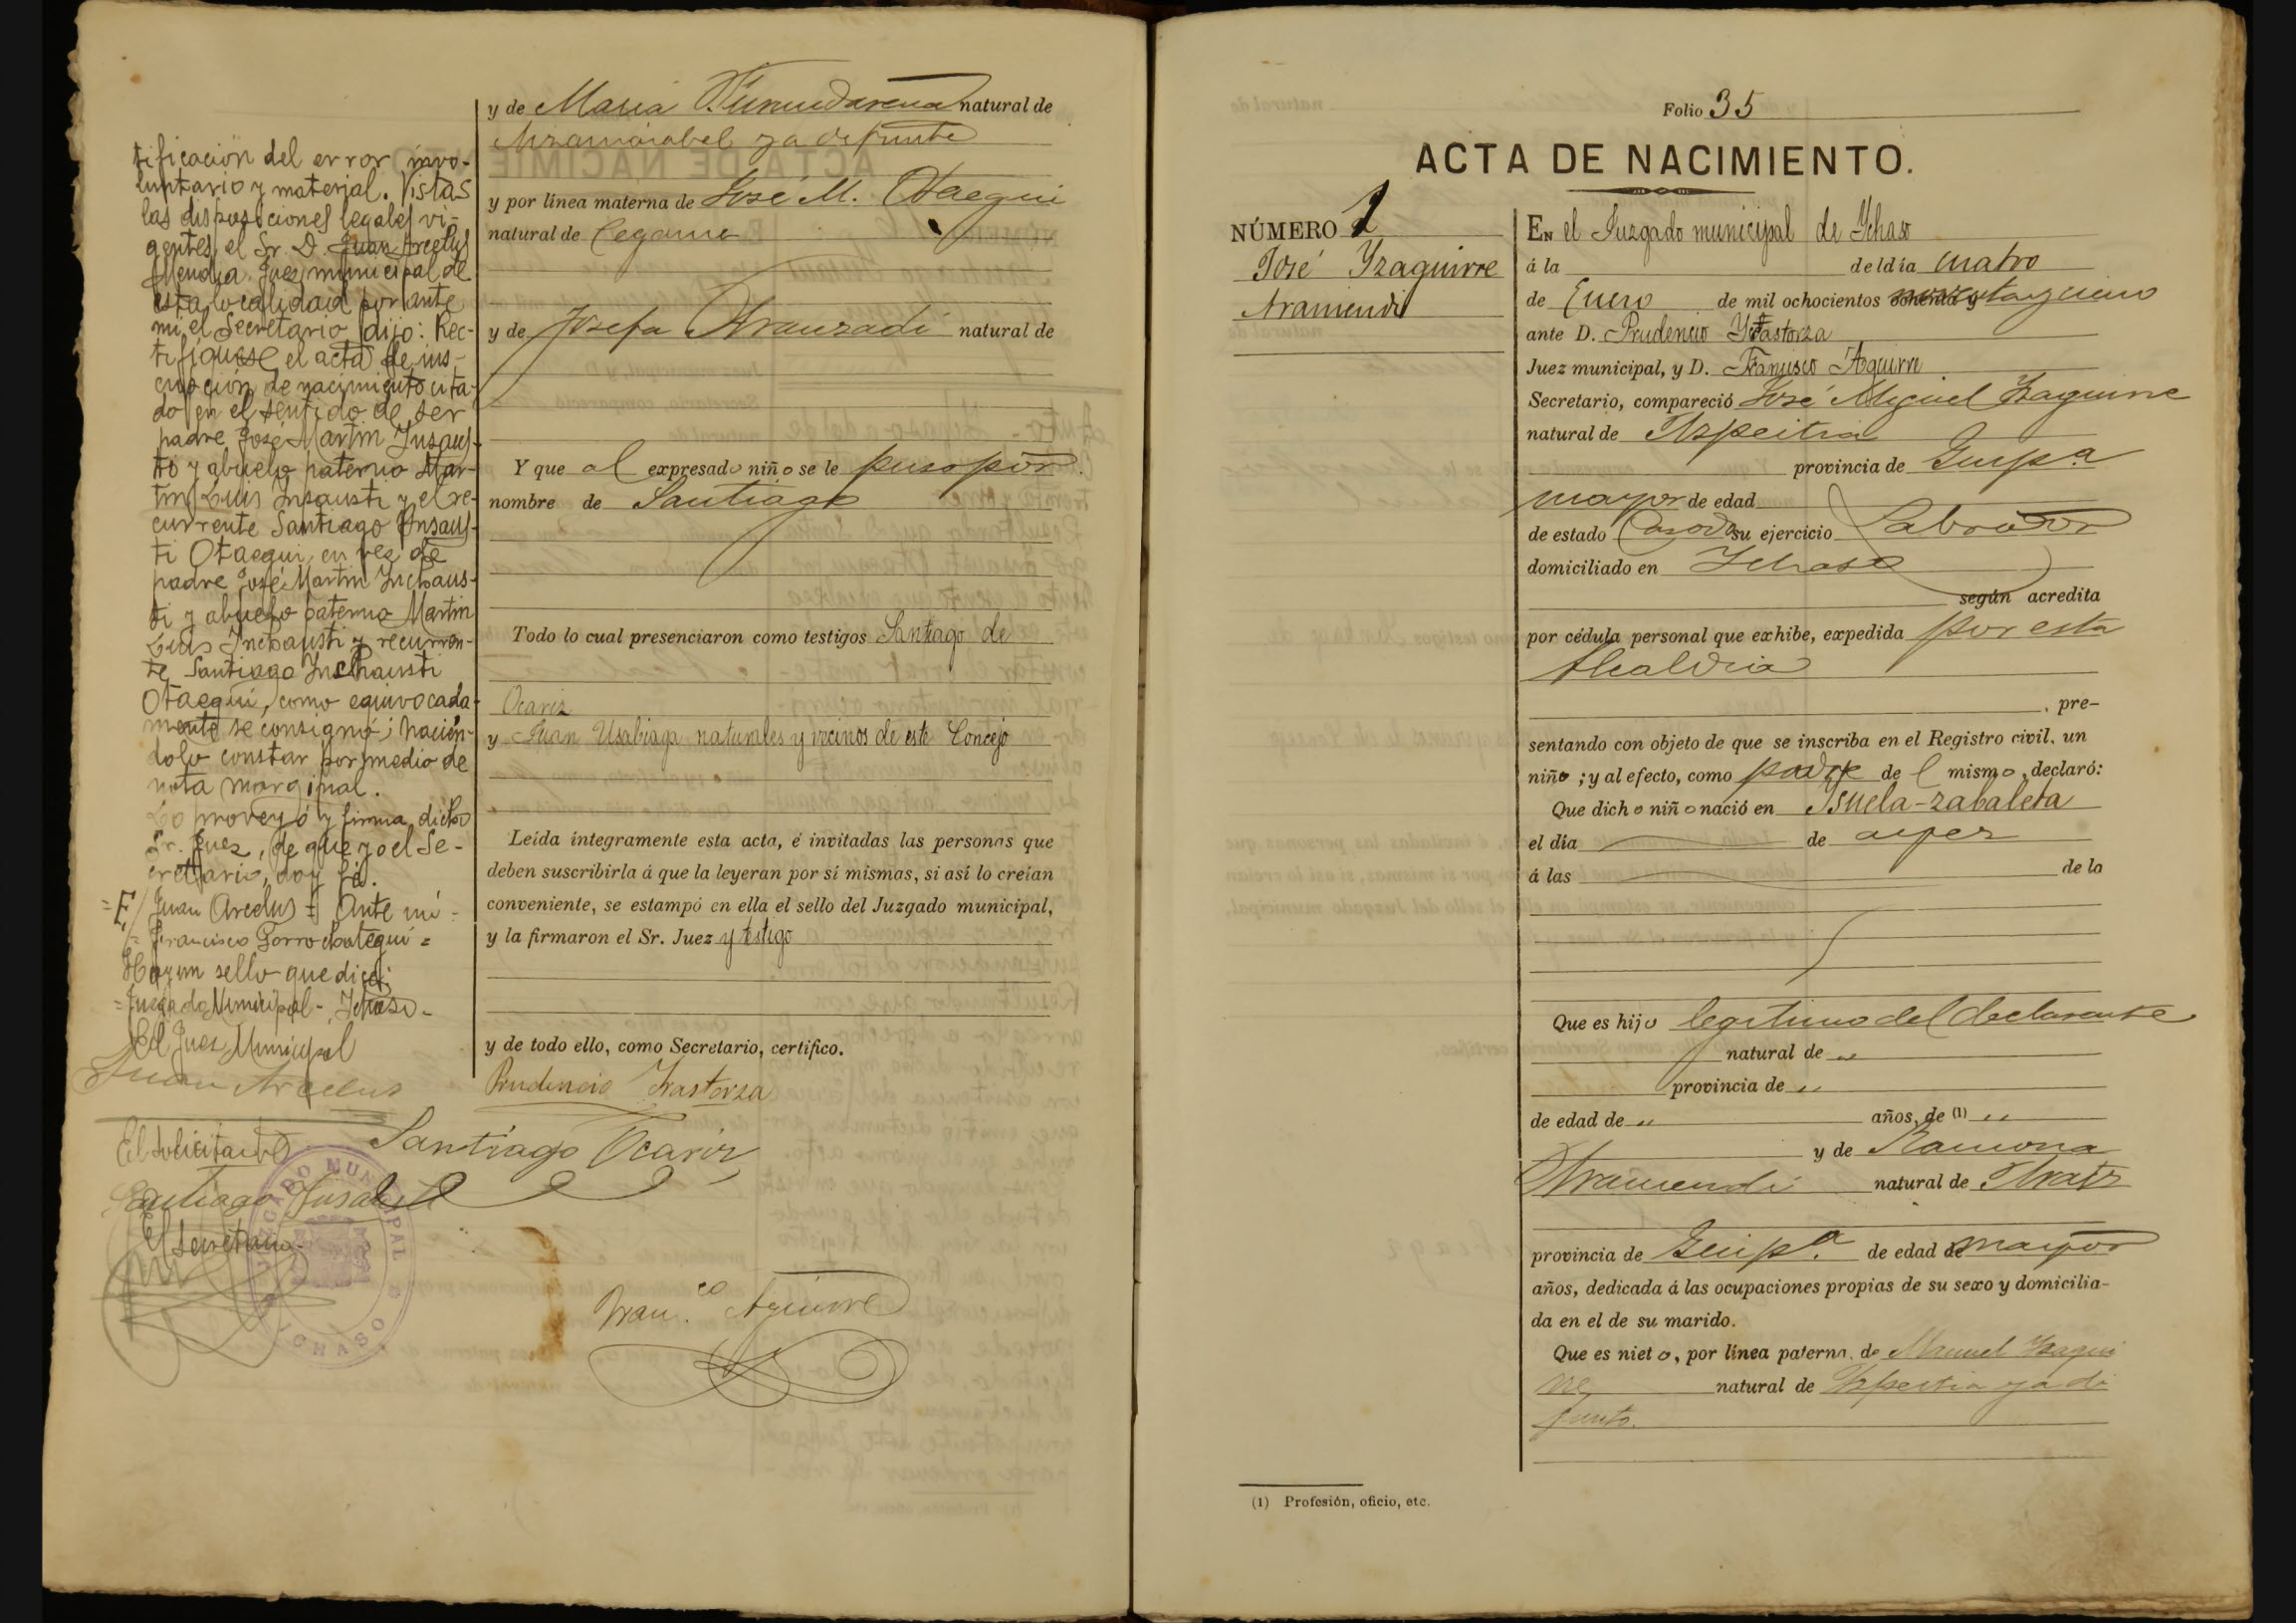 tificación del error invo-
luntario y material. Vistas
las disposiciones legales vi-
gentes, el Sr. D. Juan Arcelus
Mendia Juez municipal de
esta localidad por ante
mi, el Secretario dijo: Rec-
tifíquese el acta de ins-
cripción de nacimiento cita-
do en el sentido de ser
padre José Martin Insaus-
ti y abuelo paterno Mar-
tin Luis Insausti y el re-
currente Santiago Insaus-
ti Otaegui, en vez de
padre José Martin Inchaus-
ti y abuelo paterno Martin
Luis Inchausti y recurren-
te Santiago Inchausti
Otaegui, como equivocada-
mente se consignó; hacién-
dolo constar por medio de
nota marginal.
Lo proveyó y firma dicho
Sr. Juez, de que yo el Se-
cretario, doy fé.
=E/ Juan Arcelus = Ante mi =
= Francisco Gorrochategui =
Hay un sello que dice:
= Juzgado Municipal - Ichaso -
El Juez Municipal
Juan Arcelus
El Solicitante
Santiago Insausti
El Secretario
JUZGADO MUNICIPAL
ICHASO
y de Maria natural de
ya defunte
y por línea materna de José M. Otaegui
natural de Cegama
y de Josefa Aranzadi natural de
Y que al expresado niño se le puso por
nombre de Santiago
Todo lo cual presenciaron como testigos Santiago de
Ocariz
y Juan Usabiaga naturales y vecinos de este Concejo
Leída íntegramente esta acta, é invitadas las personas que
deben suscribirla á que la leyeran por sí mismas, si así lo creían
conveniente, se estampó en ella el sello del Juzgado municipal,
y la firmaron el Sr. Juez y testigo
y de todo ello, como Secretario, certifico.
Prudencio Irastorza
Santiago Ocariz
Fran.co Aguirre
Folio 35
ACTA DE NACIMIENTO.
NÚMERO 1
José Yzaguirre
Aramendi
EN el Juzgado municipal de Ychaso
á la del día cuatro
de Enero de mil ochocientos ochenta y noventa y uno
ante D. Prudencio Yrastorza
Juez municipal, y D. Francisco Aguirre
Secretario, compareció José Miguel Yzaguirre
natural de Azpeitia
provincia de Guip.a
mayor de edad
de estado Casado su ejercicio Labrador
domiciliado en Ichaso
según acredita
por cédula personal que exhibe, expedida por esta
Alcaldia
, pre-
sentando con objeto de que se inscriba en el Registro civil, un
niño ; y al efecto, como padre de l mismo, declaró:
Que dicho niño nació en Ysuela-zabaleta
el día de ayer
á las de la
Que es hijo legitimo del declarante
natural de „
provincia de „
de edad de „ años, de (1) „
y de Ramona
Aramendi natural de
provincia de Guip.a de edad de mayor
años, dedicada á las ocupaciones propias de su sexo y domicilia-
da en el de su marido.
Que es nieto, por línea paterna, de Manuel Yzagui
rre natural de Azpeitia ya di
funto.
(1) Profesión, oficio, etc.